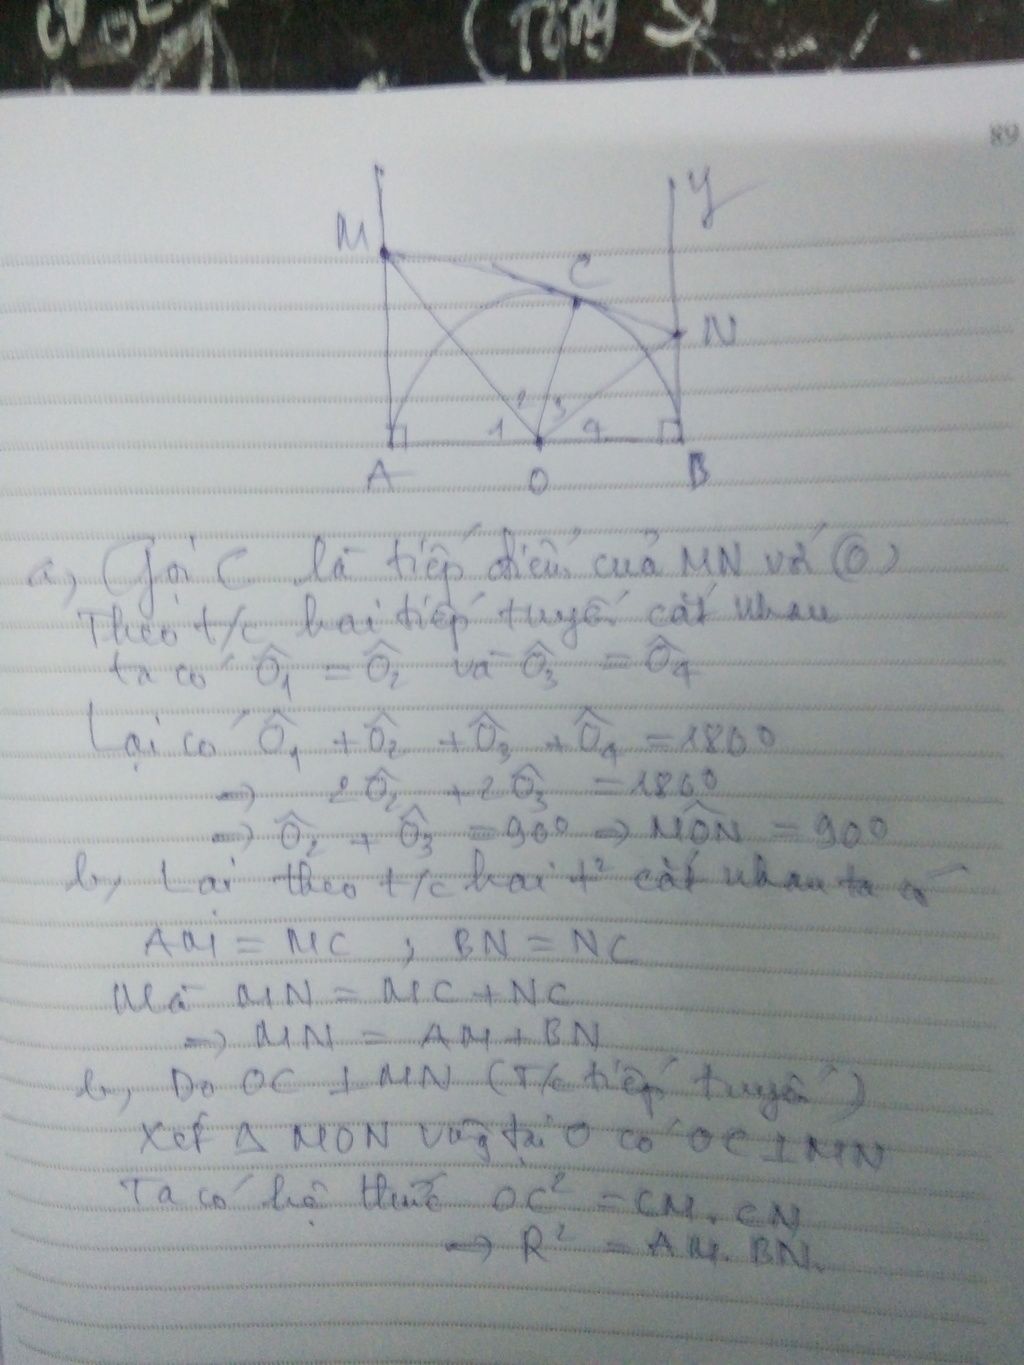 (Tổng
89
M
y
C
N
2 3
1 4
A O B
a, Gọi C là tiếp điểm của MN với (O)
Theo t/c hai tiếp tuyến cắt nhau
ta có Ô1 = Ô2 và Ô3 = Ô4
Lại có Ô1 + Ô2 + Ô3 + Ô4 = 180°
→ 2Ô2 + 2Ô3 = 180°
→ Ô2 + Ô3 = 90° → MÔN = 90°
b, Lại theo t/c hai t² cắt nhau ta có
AM = MC ; BN = NC
Mà MN = MC + NC
→ MN = AM + BN
b, Do OC ⊥ MN (T/c tiếp tuyến)
Xét Δ MON vuông tại O có OC ⊥ MN
Ta có hệ thức OC² = CM . CN
→ R² = AM . BN.